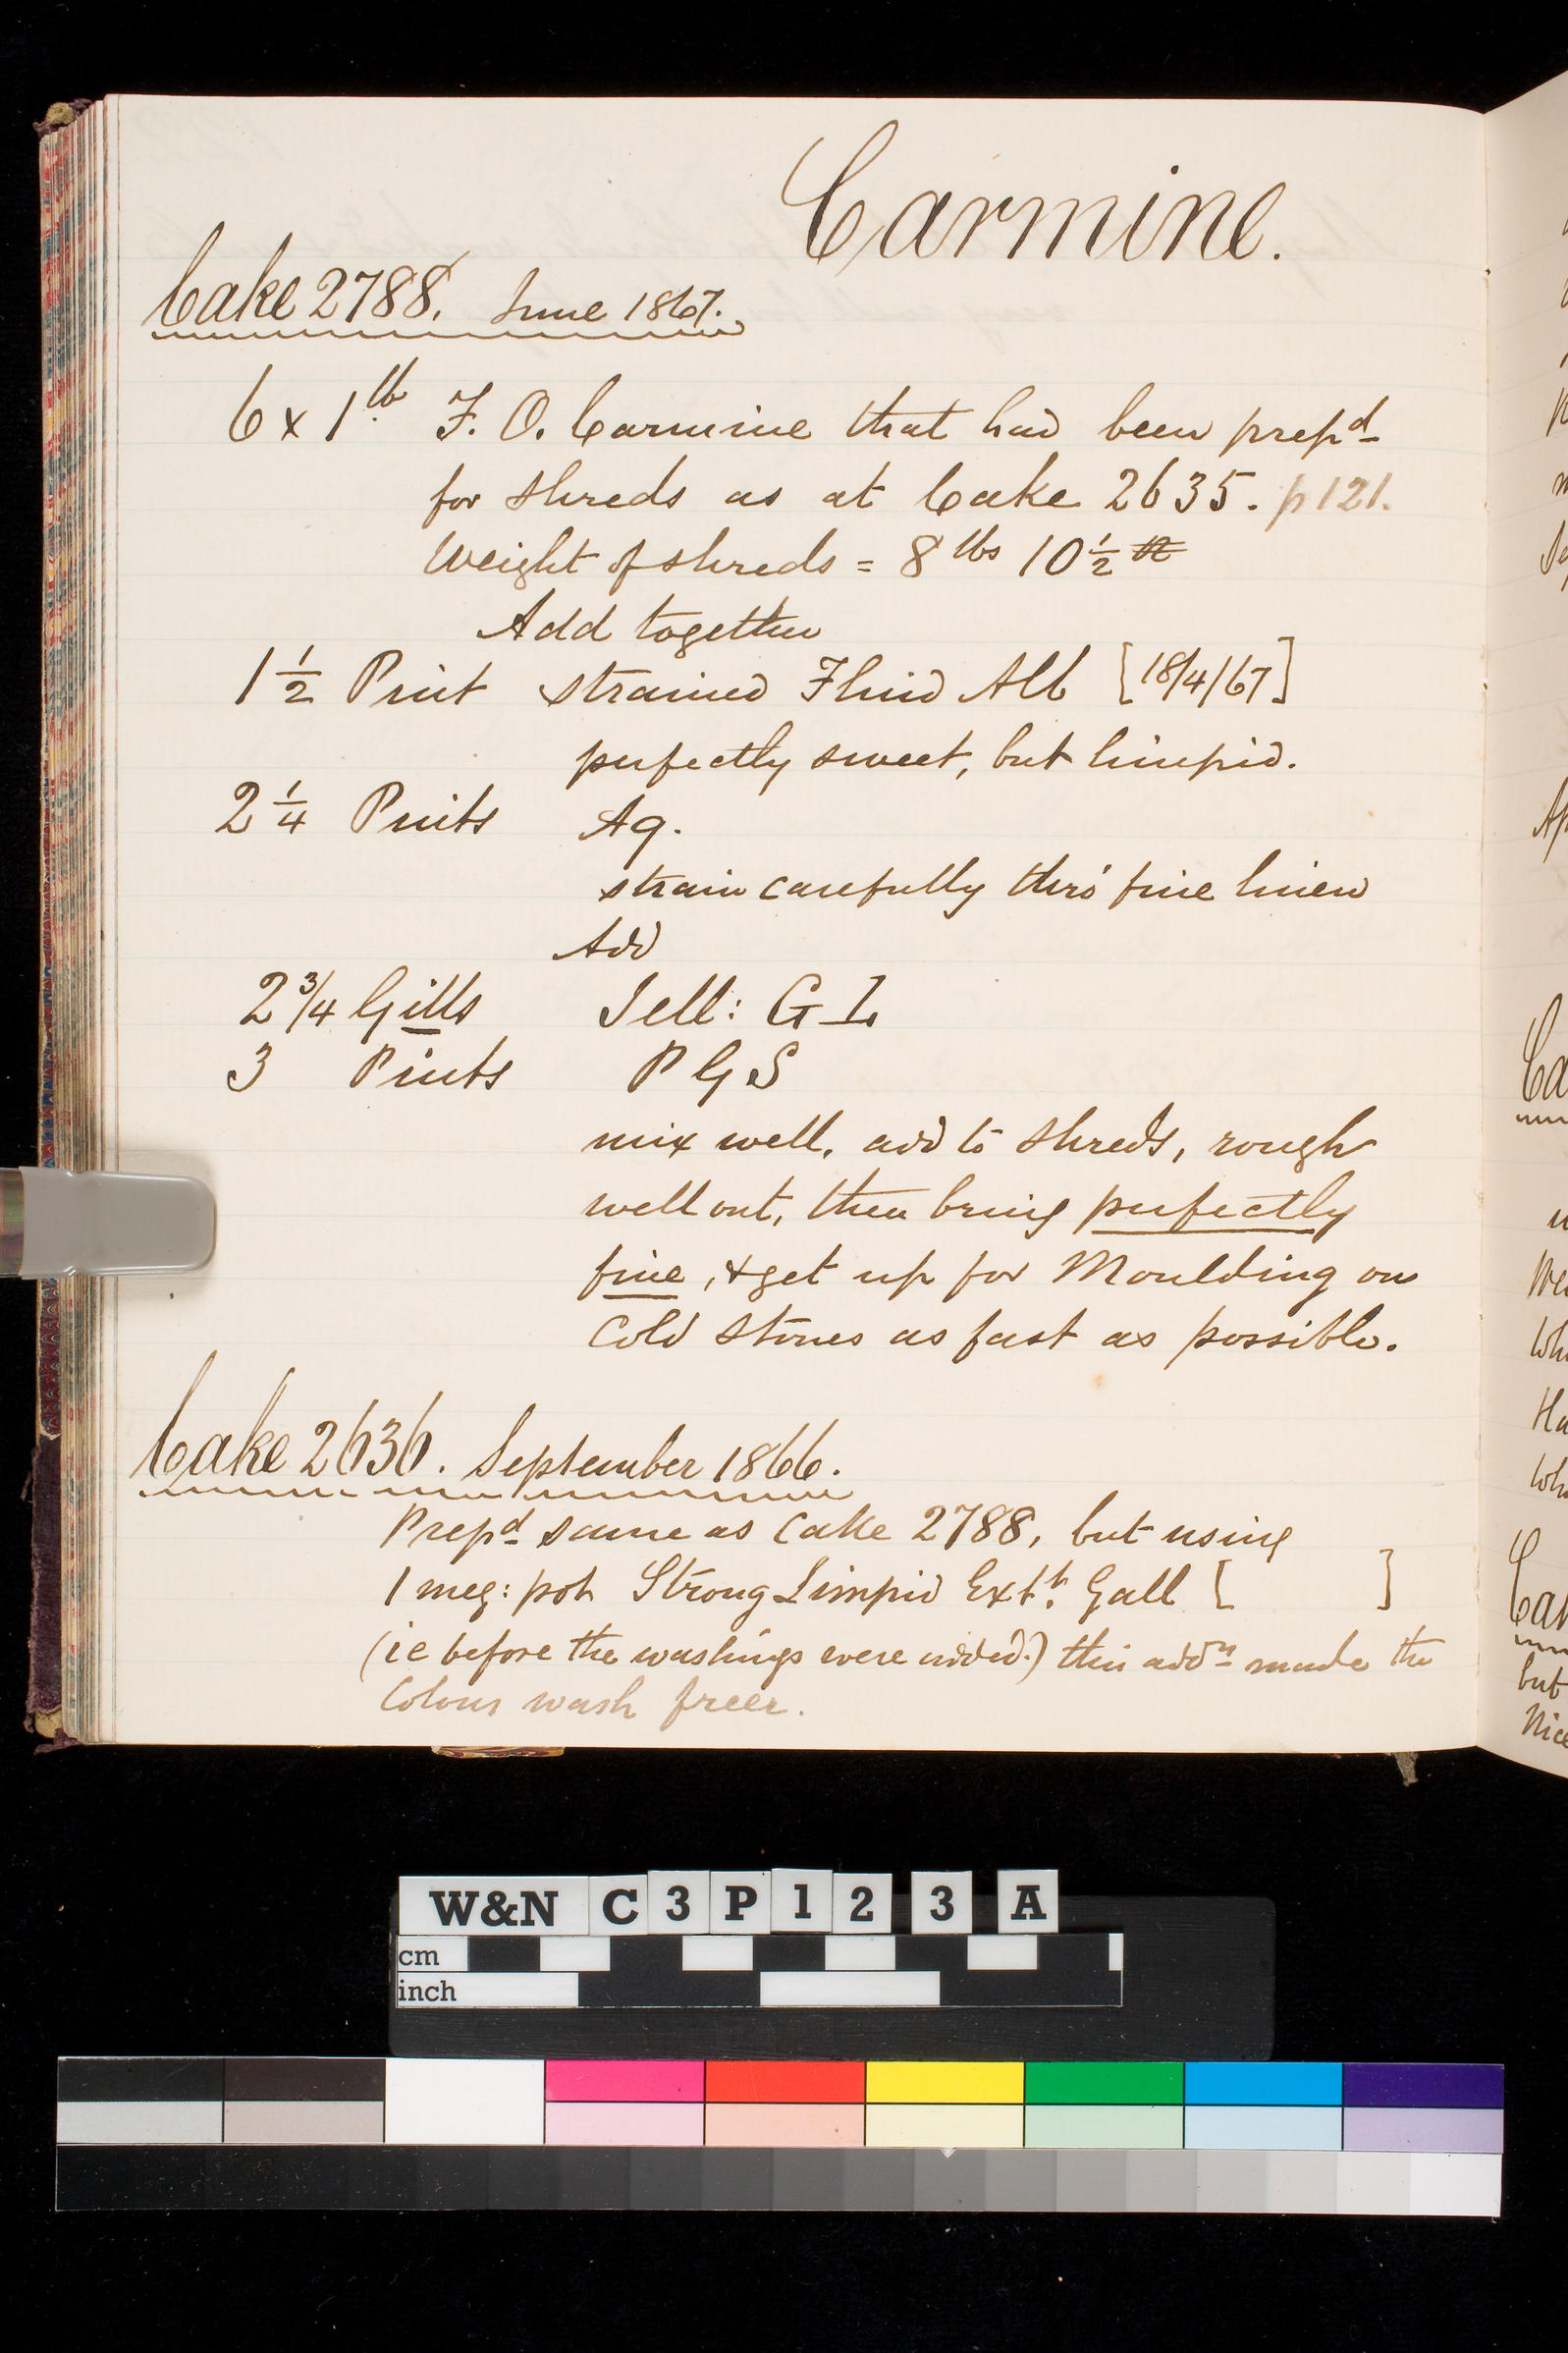 Carmine.
Cake 2788. June 1867.
6 x 1 lb F. O. Carmine that had been prepd
for shreds as at Cake 2635. p 121.
Weight of shreds = 8 lbs 10 1/2
Add together
1 1/2 Pint strained Fluid Alb [18/4/67]
perfectly sweet, but limpid.
2 1/4 Pints Aq.
strain carefully thro' fine linen
Add
2 3/4 Gills Jell: G L
3 Pints P G S
mix well, add to shreds, rough
well out, then bring perfectly
fine, & get up for Moulding on
Cold stones as fast as possible.
Cake 2636. September 1866.
Prepd same as Cake 2788, but using
1 meg: pot Strong Limpid Extt. Gall [ ]
(ie before the washings were added.) this addn made the
Colour wash freer.
W&N C 3 P 1 2 3 A
cm
inch